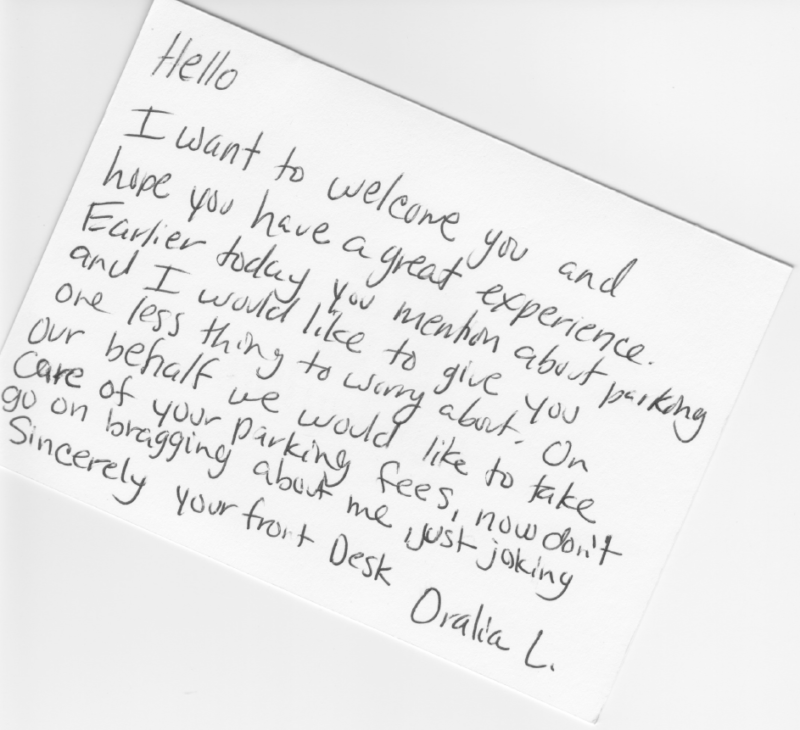 Hello
I want to welcome you and
hope you have a great experience.
Earlier today you mention about parking
and I would like to give you
one less thing to worry about. On
our behalf we would like to take
care of your parking fees, now don't
go on bragging about me, just joking
Sincerely your front Desk
Oralia L.